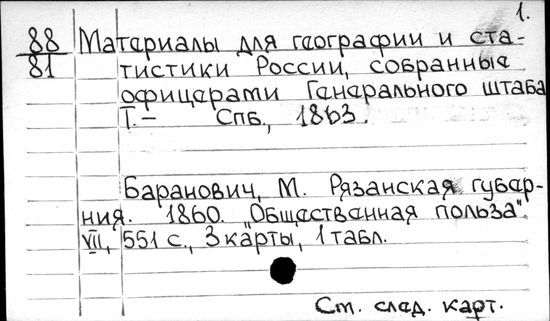 1.
88/81 Материалы для географии и ста-
тистики России, собранные
офицерами Генерального штаба
Т.— СПб., 1863.
Баранович, М. Рязанская губер-
ния. 1860. "Общественная польза".
VII, 551 с., 3 карты, 1 табл.
См. след. карт.